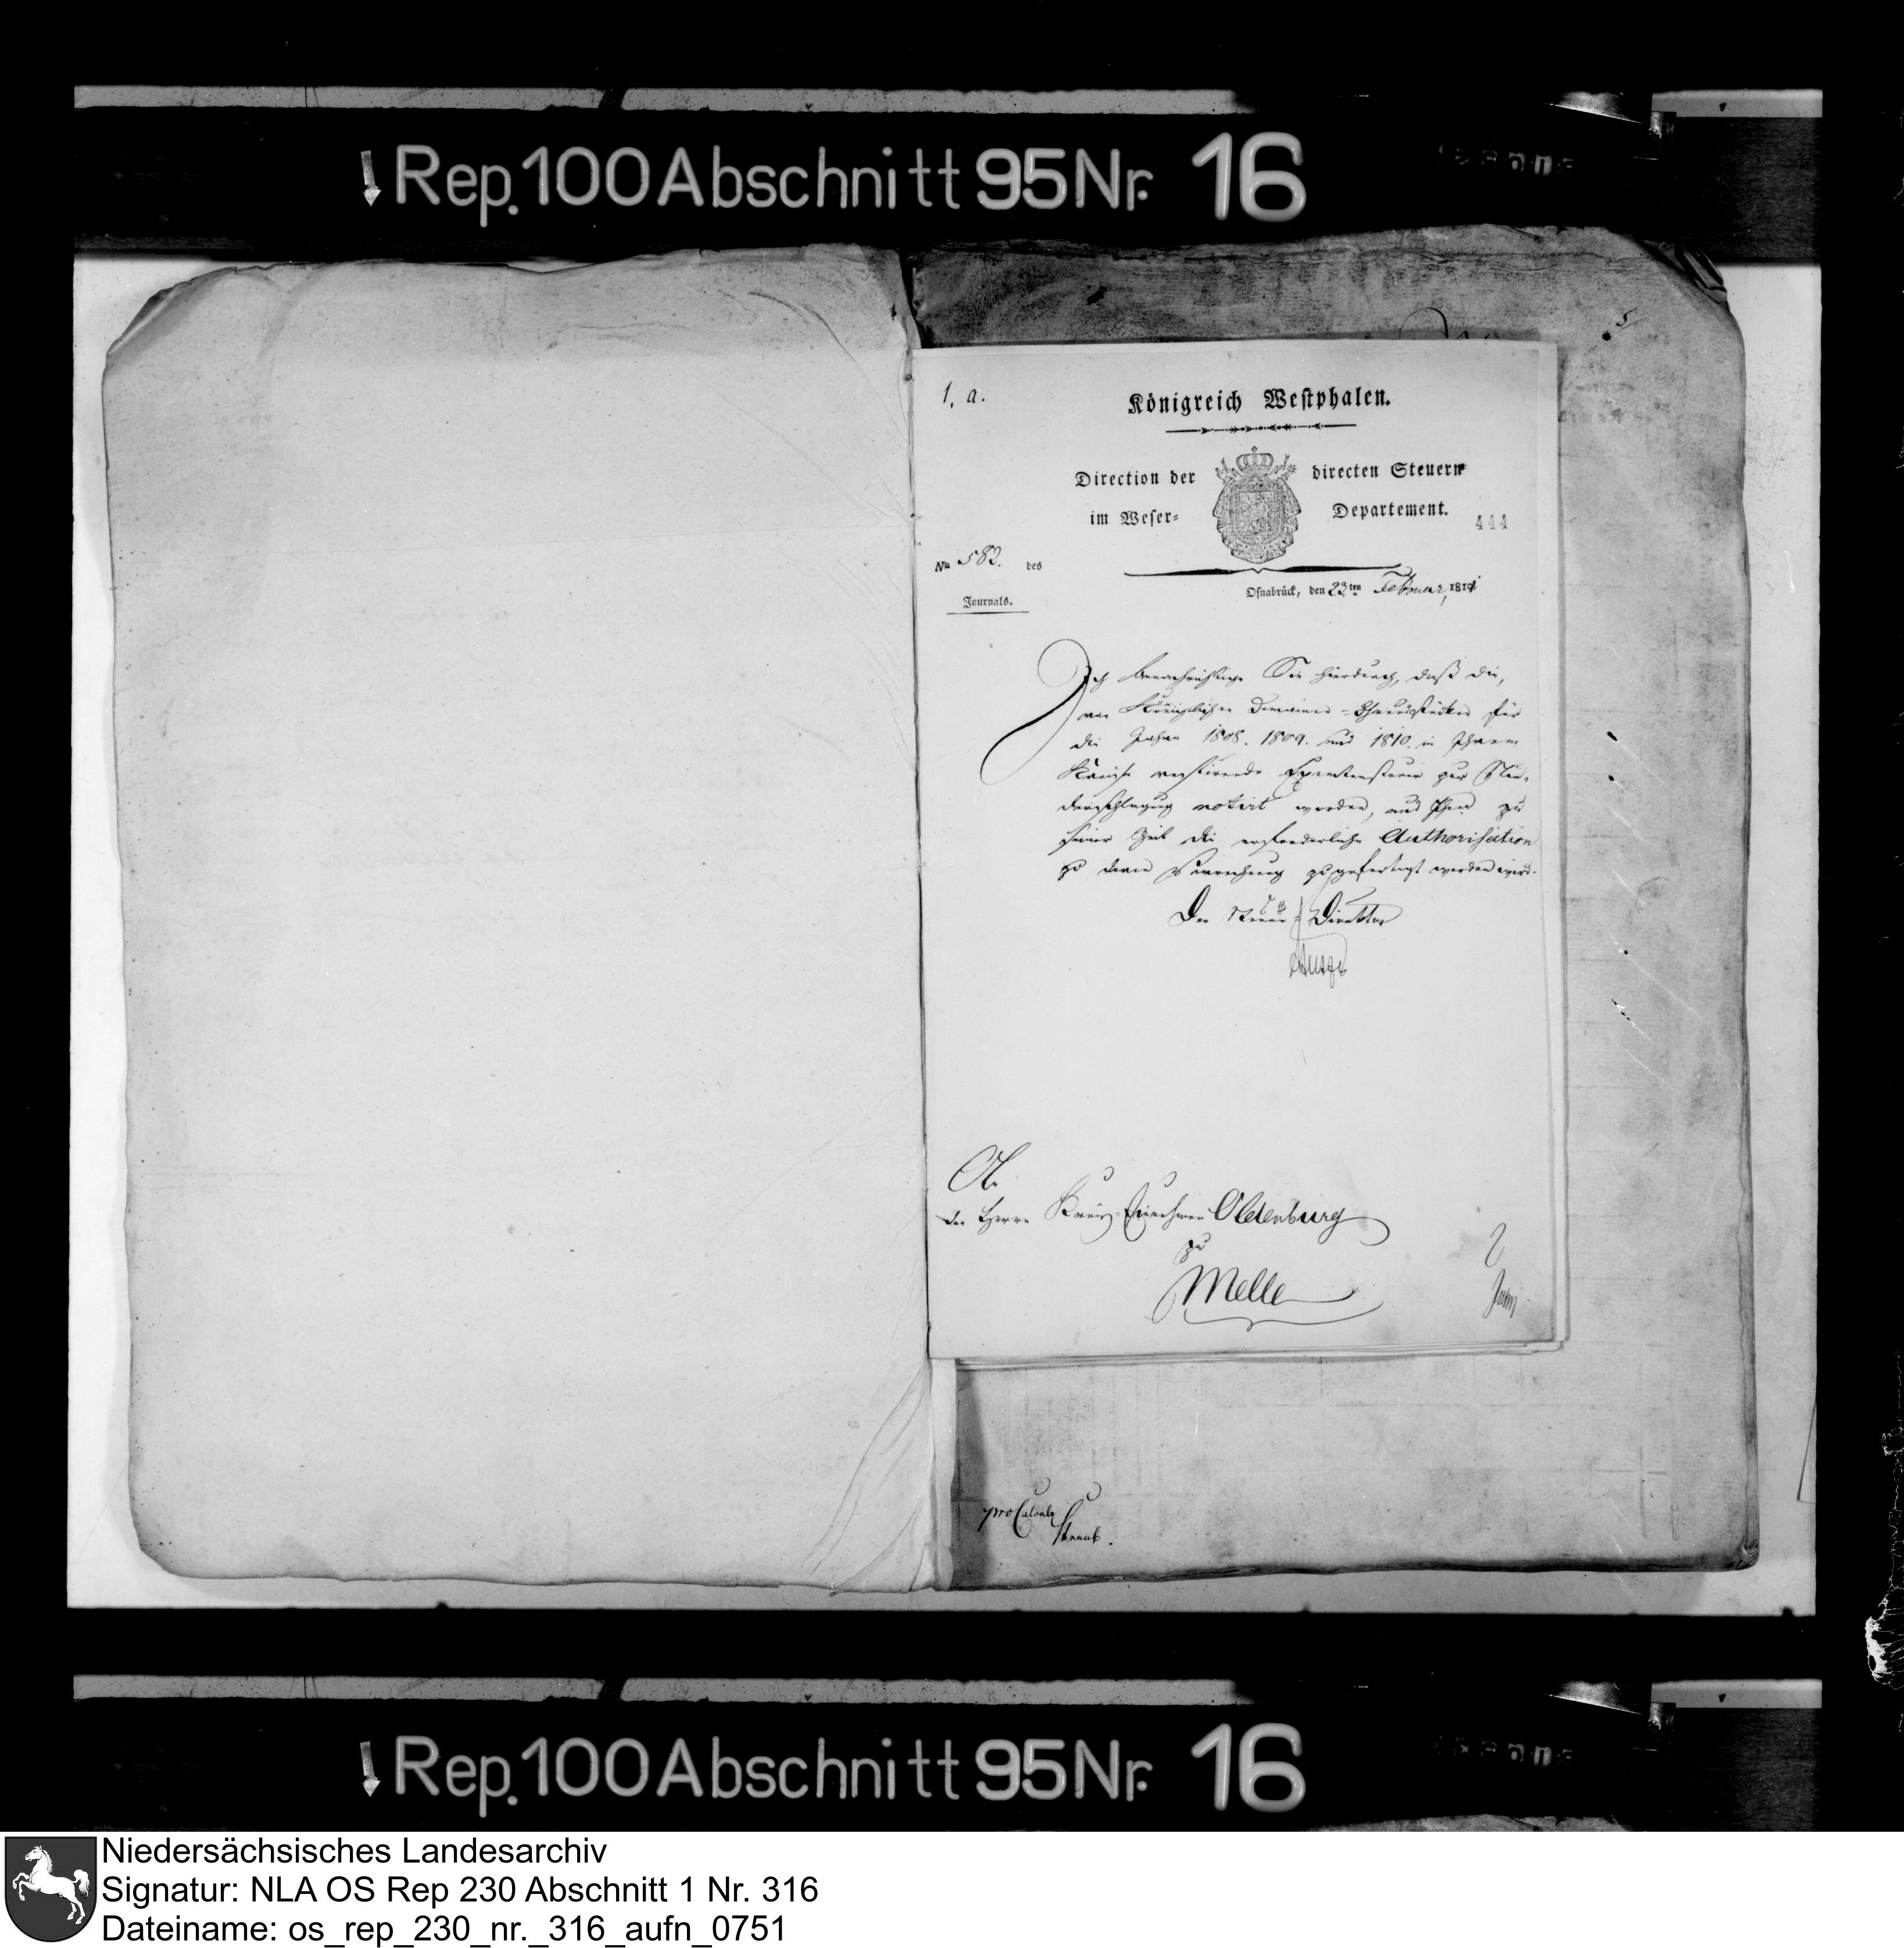 Rep. 100 Abschnitt 95 Nr. 16
5
1, a.
Königreich Westphalen.
Direction der directen Steuern
im Weser- Departement.
444
No 583. des
Journals.
Osnabrück, den 23ten Februar, 1811
Ich benachrichtige Sie hierdurch, daß die,
von Königlichen Domainen-Grundstücken für
die Jahre 1808. 1809. und 1810. in Ihrem
Kreise restirende Exemtensteuer zur Nie-
derschlagung notirt worden, und Ihnen zu
seiner Zeit die erforderliche Authorisation
zu deren Verrechnung zugefertigt werden wird.
Der Steuer-Direktor
An
den Herrn Kreis-Einnehmer Oldenburg
zu
Melle
pro Calculo
Rep. 100 Abschnitt 95 Nr. 16
Niedersächsisches Landesarchiv
Signatur: NLA OS Rep 230 Abschnitt 1 Nr. 316
Dateiname: os_rep_230_nr._316_aufn_0751